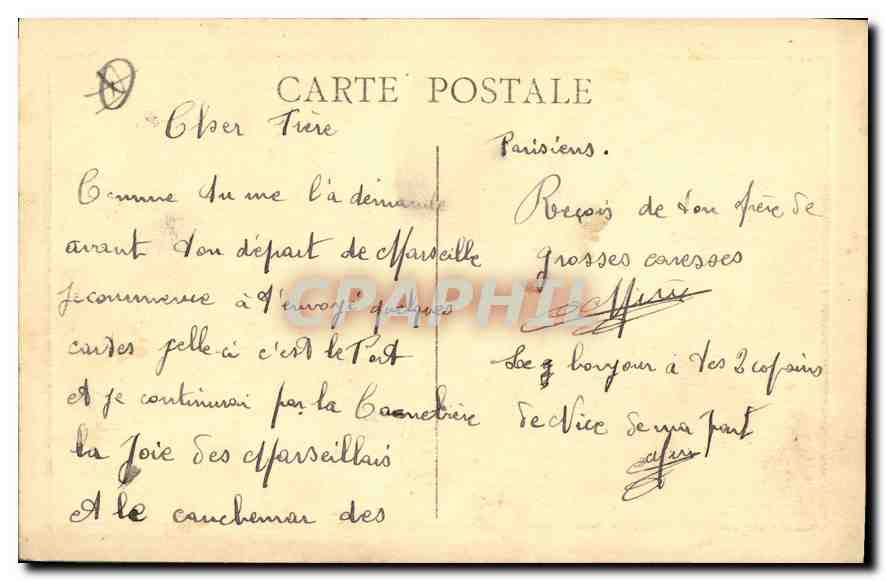 CARTE POSTALE
Cher Frère
Comme tu me l'a demandé
avant ton départ de Marseille
je commence à t'envoyé quelques
cartes celle ci c'est le Port
et je continurai par la Cannebière
la Joie des Marseillais
et le cauchemar des
Parisiens.
Reçois de ton frère de
grosses caresses
bonjour à tes 2 copains
de Nice de ma part
CARTAPHIL